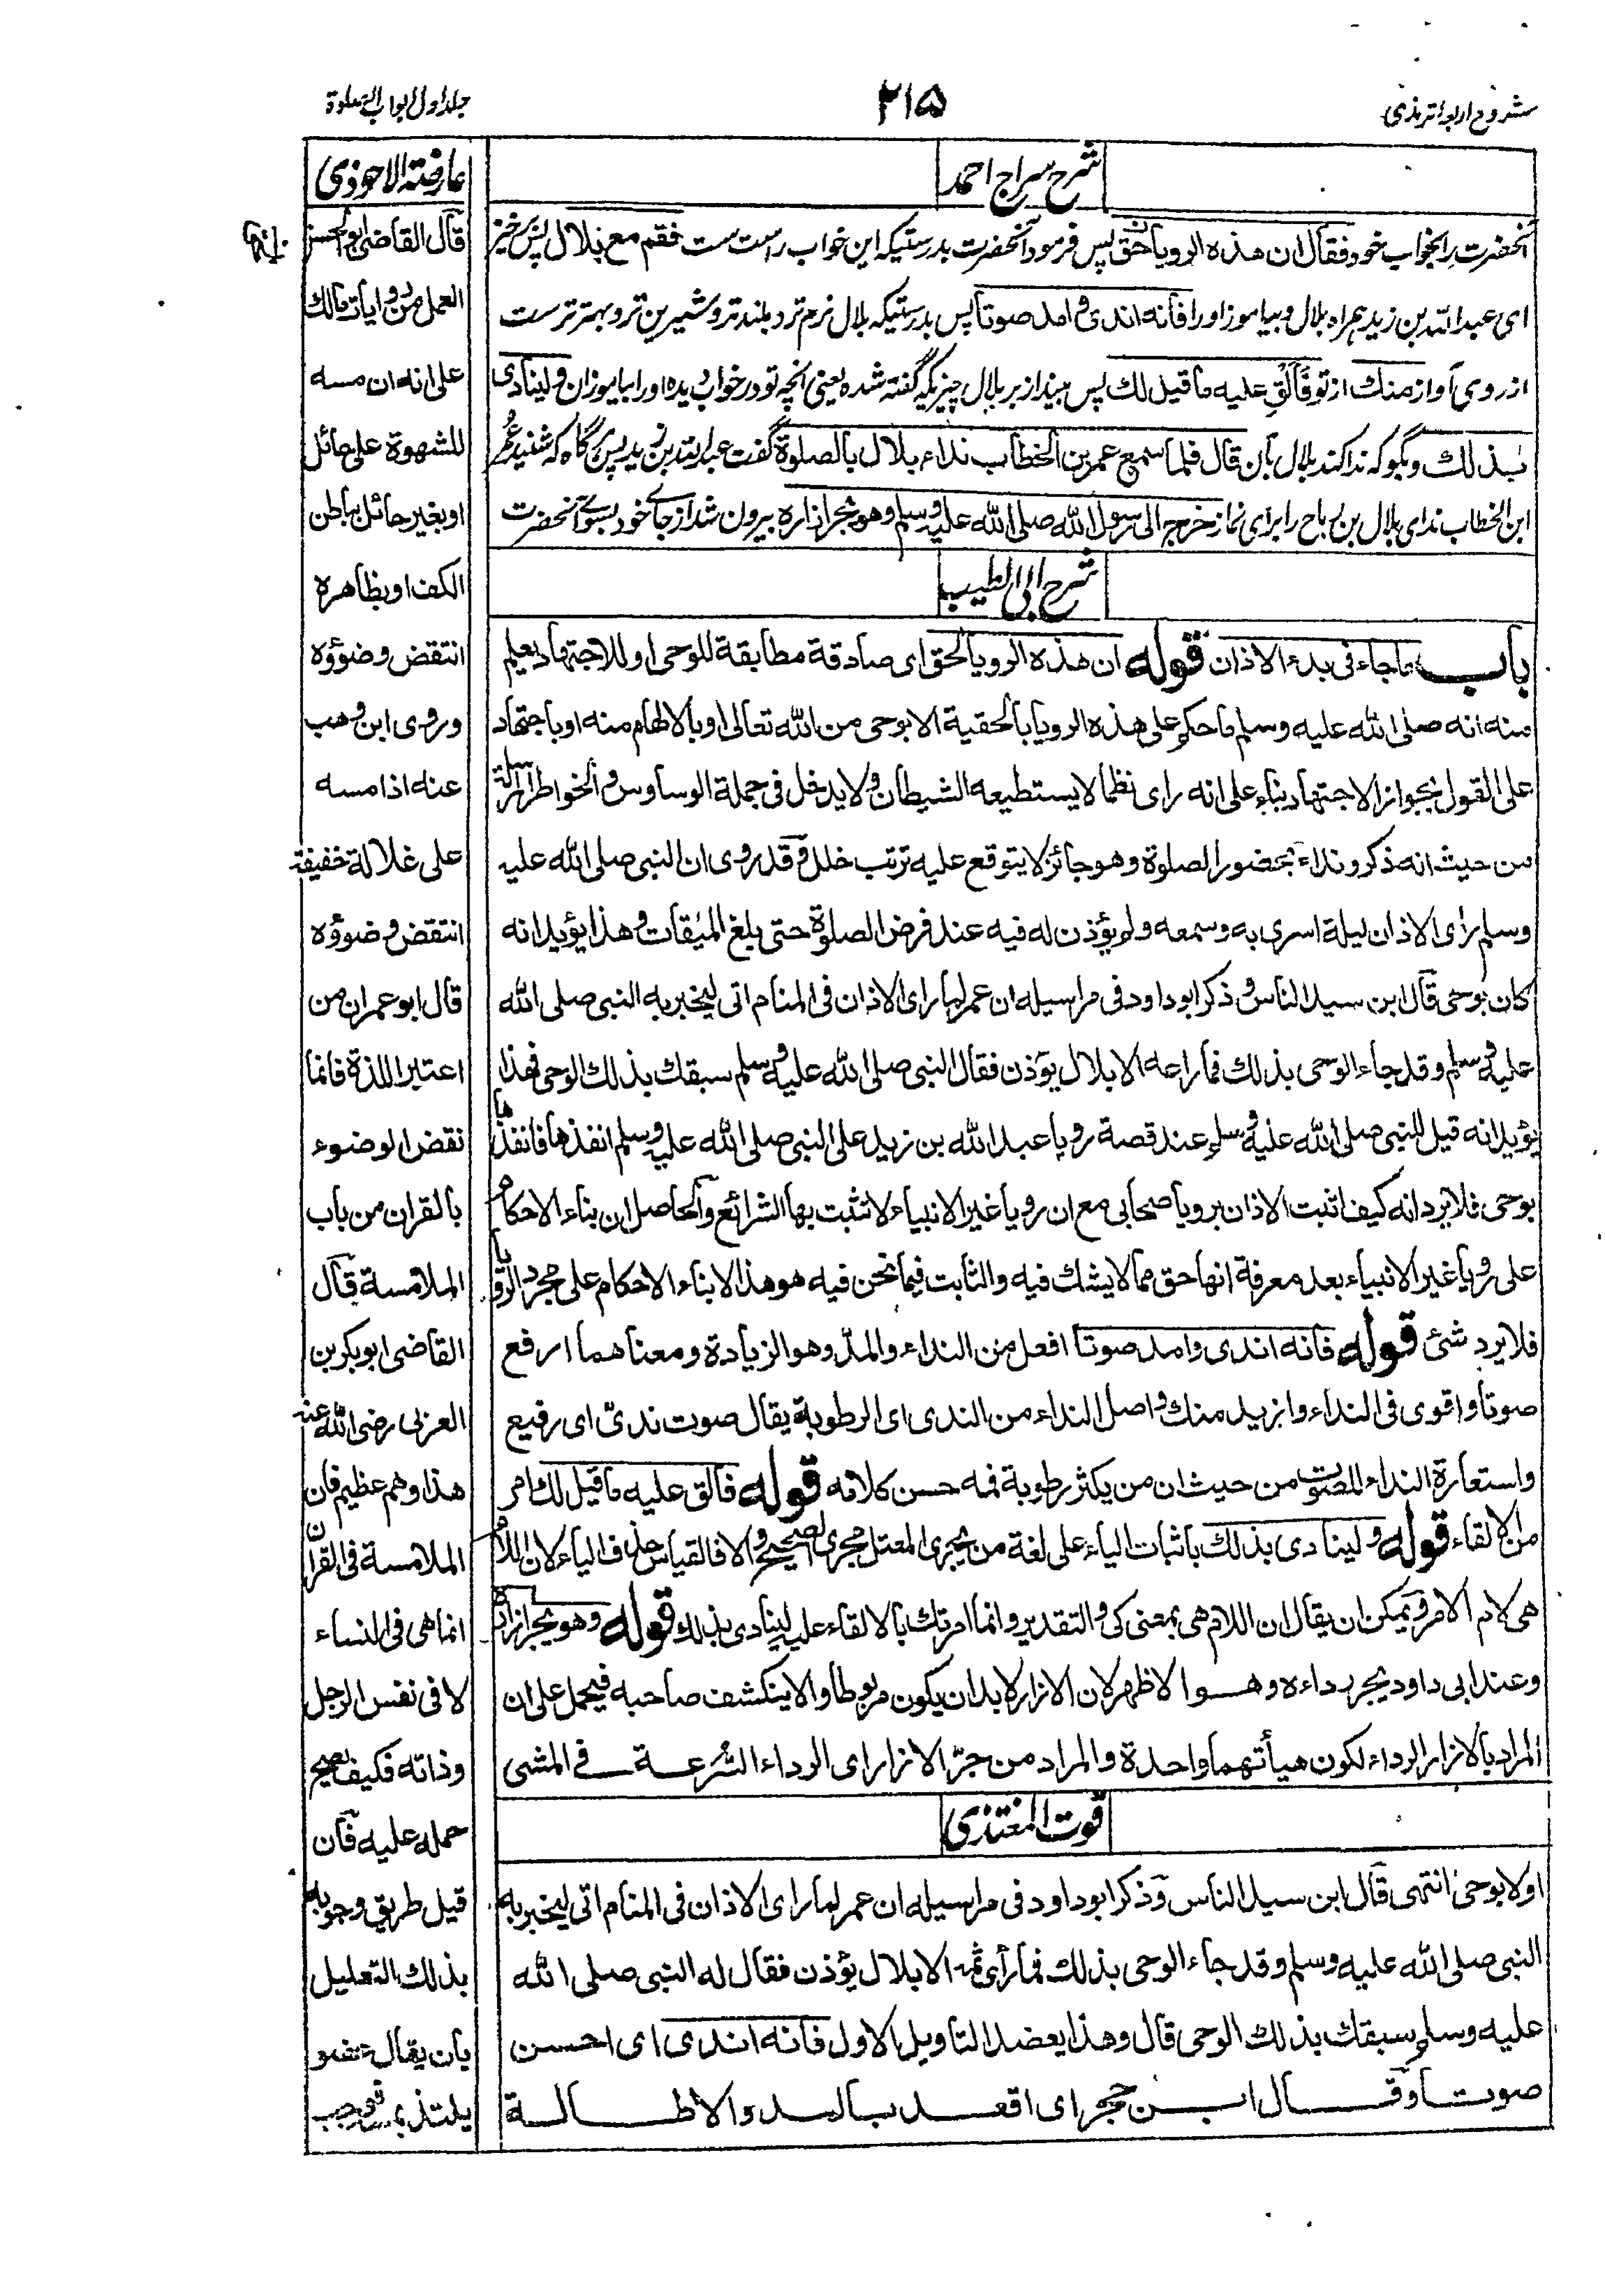 شروح اربعہ ترمذی
۲۱۵
جلد اول ابواب الصلوۃ
شرح سراج احمد
آنحضرت را بخواب خود فقال ان هذه الرويا حق پس فرمود آنحضرت بدرستیکہ این خواب راست ست فقم مع بلال پس برخیز
ای عبد اللہ بن زید ہمراہ بلال و بیاموز او را فأنه اندى و امد صوتا پس بدرستیکہ بلال نرم تر و بلند تر و شیرین تر و بہتر ترست
از روی آواز منك از تو فألق عليه ما قيل لك پس بینداز بر بلال چیزیکہ گفتہ شدہ یعنی آنچہ تو در خواب دیدہ او را بیاموزان و لينادى
بذلك و بگو کہ ندا کند بلال بآن قال فلما سمع عمر بن الخطاب نداء بلال بالصلوة گفت عبد اللہ بن زید پس ہرگاہ کہ شنید عمر
ابن الخطاب ندای بلال بن رباح را برای نماز خرج الى رسول الله صلى الله عليه وسلم وهو يجر ازاره بیرون شد از جای خود بسوی آنحضرت
شرح ابی الطیب
باب ما جاء فى بدء الاذان قوله ان هذه الرويا لحق اى صادقة مطابقة للوحى او للاجتهاد يعلم
منه انه صلى الله عليه وسلم ما حكم على هذه الرويا بالحقية الا بوحى من الله تعالى او بالالهام منه او باجتهاد
على القول بجواز الاجتهاد بناء على انه راى نظما لا يستطيعه الشيطان ولا يدخل فى جملة الوساوس والخواطر المرسلة
من حيث انه ذكر ونداء بحضور الصلوة وهو جائز لا يتوقع عليه ترتب خلل وقد روى ان النبى صلى الله عليه
وسلم راى الاذان ليلة اسرى به وسمعه ولم يؤذن له فيه عند فرض الصلوة حتى بلغ الميقات وهذا يؤيد انه
كان بوحى قال ابن سيد الناس وذكر ابو داود فى مراسيله ان عمر لما راى الاذان فى المنام اتى ليخبر به النبى صلى الله
عليه وسلم وقد جاء الوحى بذلك فما راعه الا بلال يؤذن فقال النبى صلى الله عليه وسلم سبقك بذلك الوحى فهذا
يؤيد انه قيل للنبى صلى الله عليه وسلم عند قصة رويا عبد الله بن زيد على النبى صلى الله عليه وسلم انفذها فانفذها
بوحى فلا يرد انه كيف اثبت الاذان برويا صحابى مع ان رويا غير الانبياء لا تثبت بها الشرائع والحاصل ان بناء الاحكام
على رويا غير الانبياء بعد معرفة انها حق مما لا يشك فيه والثابت فيما نحن فيه هو هذا لا بناء الاحكام على مجرد الرويا
فلا يرد شئ قوله فانه اندى وامد صوتا افعل من النداء والمد وهو الزيادة ومعناهما ارفع
صوتا واقوى فى النداء وازيد منك واصل النداء من الندى اى الرطوبة يقال صوت ندىّ اى رفيع
واستعارة النداء للصوت من حيث ان من يكثر رطوبة فمه حسن كلامه قوله فألق عليه ما قيل لك امر
من الالقاء قوله ولينادى بذلك باثبات الياء على لغة من يجرى المعتل مجرى الصحيح والا فالقياس حذف الياء لان اللام
هى لام الامر ويمكن ان يقال ان اللام هى بمعنى كى والتقدير وانما امرتك بالالقاء عليه لينادى بذلك قوله وهو يجر ازاره
وعند ابى داود يجر رداءه وهو الاظهر لان الازار لابد ان يكون مربوطا والا ينكشف صاحبه فيحمل على ان
المراد بالازار الرداء لكون هيأتهما واحدة والمراد من جرّ الازار اى الرداء السُّرعة فى المشى
قوت المغتذی
او لا بوحى انتهى قال ابن سيد الناس وذكر ابو داود فى مراسيله ان عمر لما راى الاذان فى المنام اتى ليخبر به
النبى صلى الله عليه وسلم وقد جاء الوحى بذلك فما رأى ثمه الا بلال يؤذن فقال له النبى صلى الله
عليه وسلم سبقك بذلك الوحى قال وهذا يعضد التاويل الاول فانه اندى اى احسن
صوتا وقال ابن حجر اى اقعد بالمد والاطالة
عارضة الاحوذی
قال القاضى ابو الحسن
العمل من روايات مالك
على انه ان مسه
للشهوة على حائل
او بغير حائل بباطن
الكف او بظاهره
انتقض وضوؤه
وروى ابن وهب
عنه اذا مسه
على غلالة خفيفة
انتقض وضوؤه
قال ابو عمران من
اعتبر اللذة فانما
نقض الوضوء
بالقران من باب
الملامسة قال
القاضى ابو بكر بن
العربى رضى الله عنه
هذا وهم عظيم فان
الملامسة فى القران
انما هى فى النساء
لا فى نفس الرجل
وذاته فكيف يصح
حمله عليه فان
قيل طريق وجوبه
بذلك التعليل
بان يقال عضو
يلتذ